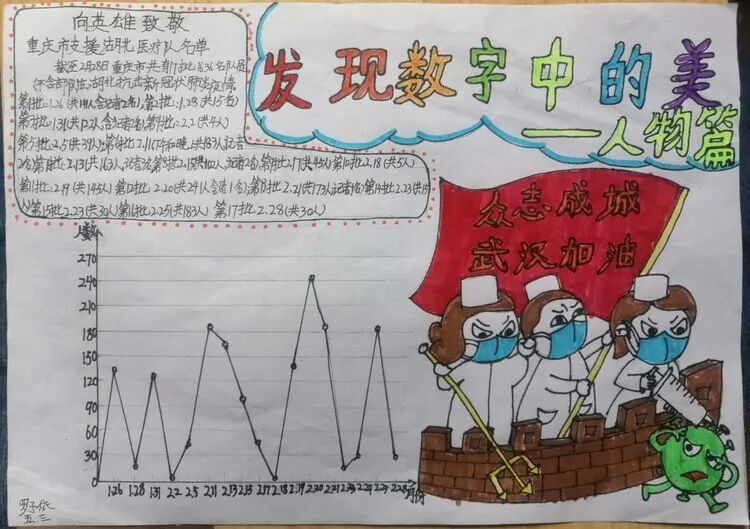 向英雄致敬
重庆市支援湖北医疗队名单
截至2月28日重庆市共有17批1636名队员
(不含部队)赴湖北抗击新冠状肺炎疫情
第1批:1.26 (共 人含记者2名)第2批:1.28 (共15名)
第3批:1.31 (共 人含记者 名)第4批:2.2 (共4人)
第5批:2.5 (共39人)第6批 2.11 共183人记者
2名)第7批:2.13(共163人,记者 )第8批2.15共 人,记者2名)第9批2.17(共45人)第10批2.18 (共5人)
第11批:2.19 (共145人)第12批:2.20 (共241人含 )第13批:2.21 共 人记者 名)第14批 2.23(共15
人)第15批2.23(共30人)第16批:2.25(共183人) 第17批2.28(共30人)
发现数字中的美
——人物篇
众志成城
武汉加油
人数
270
240
210
180
150
120
90
60
30
0
1.26 1.28 1.31 2.2 2.5 2.11 2.13 2.15 2.17 2.18 2.19 2.20 2.21 2.23 2.24 2.28 月份
五.三